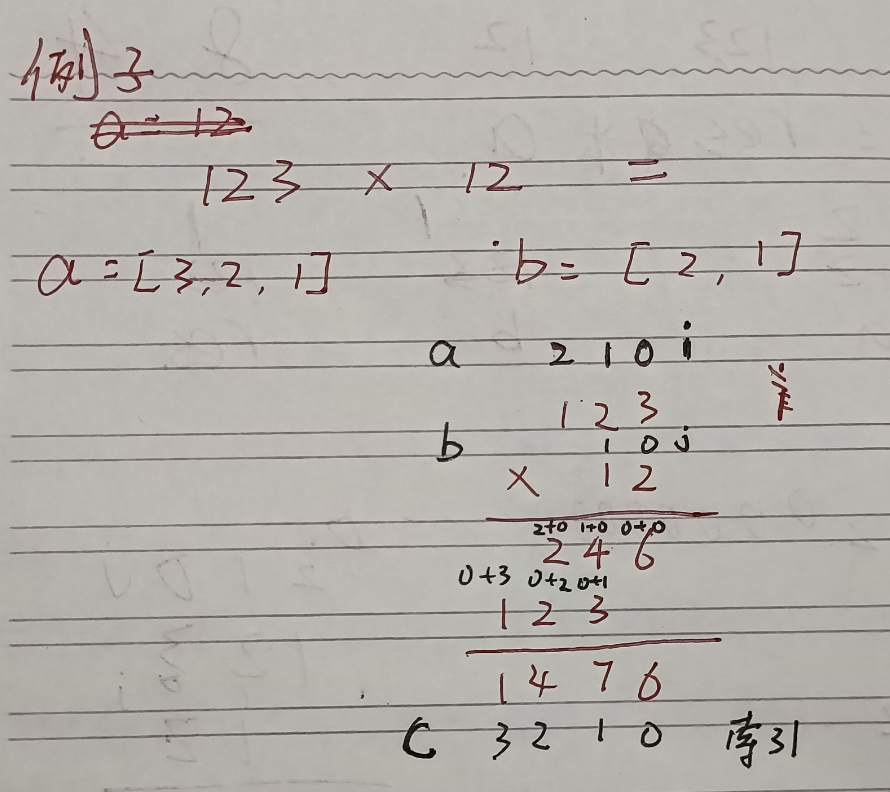 例子
a = 12
123 × 12 =
a = [3,2,1] b = [2,1]
a 2 1 0 i
1 2 3
b 1 0 j
× 1 2
2+0 1+0 0+0
2 4 6
0+3 0+2 0+1
1 2 3
1 4 7 6
C 3 2 1 0 索引